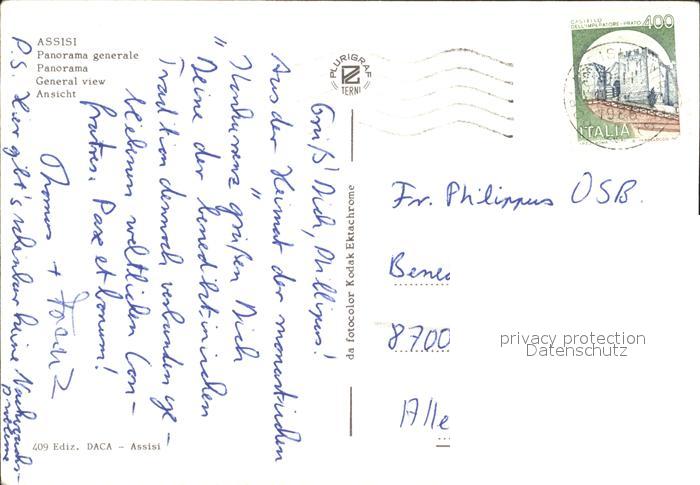 ASSISI
Panorama generale
Panorama
General view
Ansicht
PLURIGRAF
TERNI
CASTELLO
DELL'IMPERATORE - PRATO 400
ITALIA
Grüß' Dich, Philippus!
Aus der Heimat der monastischen
"Konkurrenz" grüßen Dich
Deine der benediktinischen
Tradition dennoch verbunden ge-
bliebenen weltlichen Con-
fratres. Pax et bonum!
Thomas +
P.S. Hier gibt's scheinbar keine Nachwuchs-
probleme
da fotocolor Kodak Ektachrome
Fr. Philippus OSB.
Bene
8700
Alle
privacy protection
Datenschutz
409 Ediz. DACA - Assisi